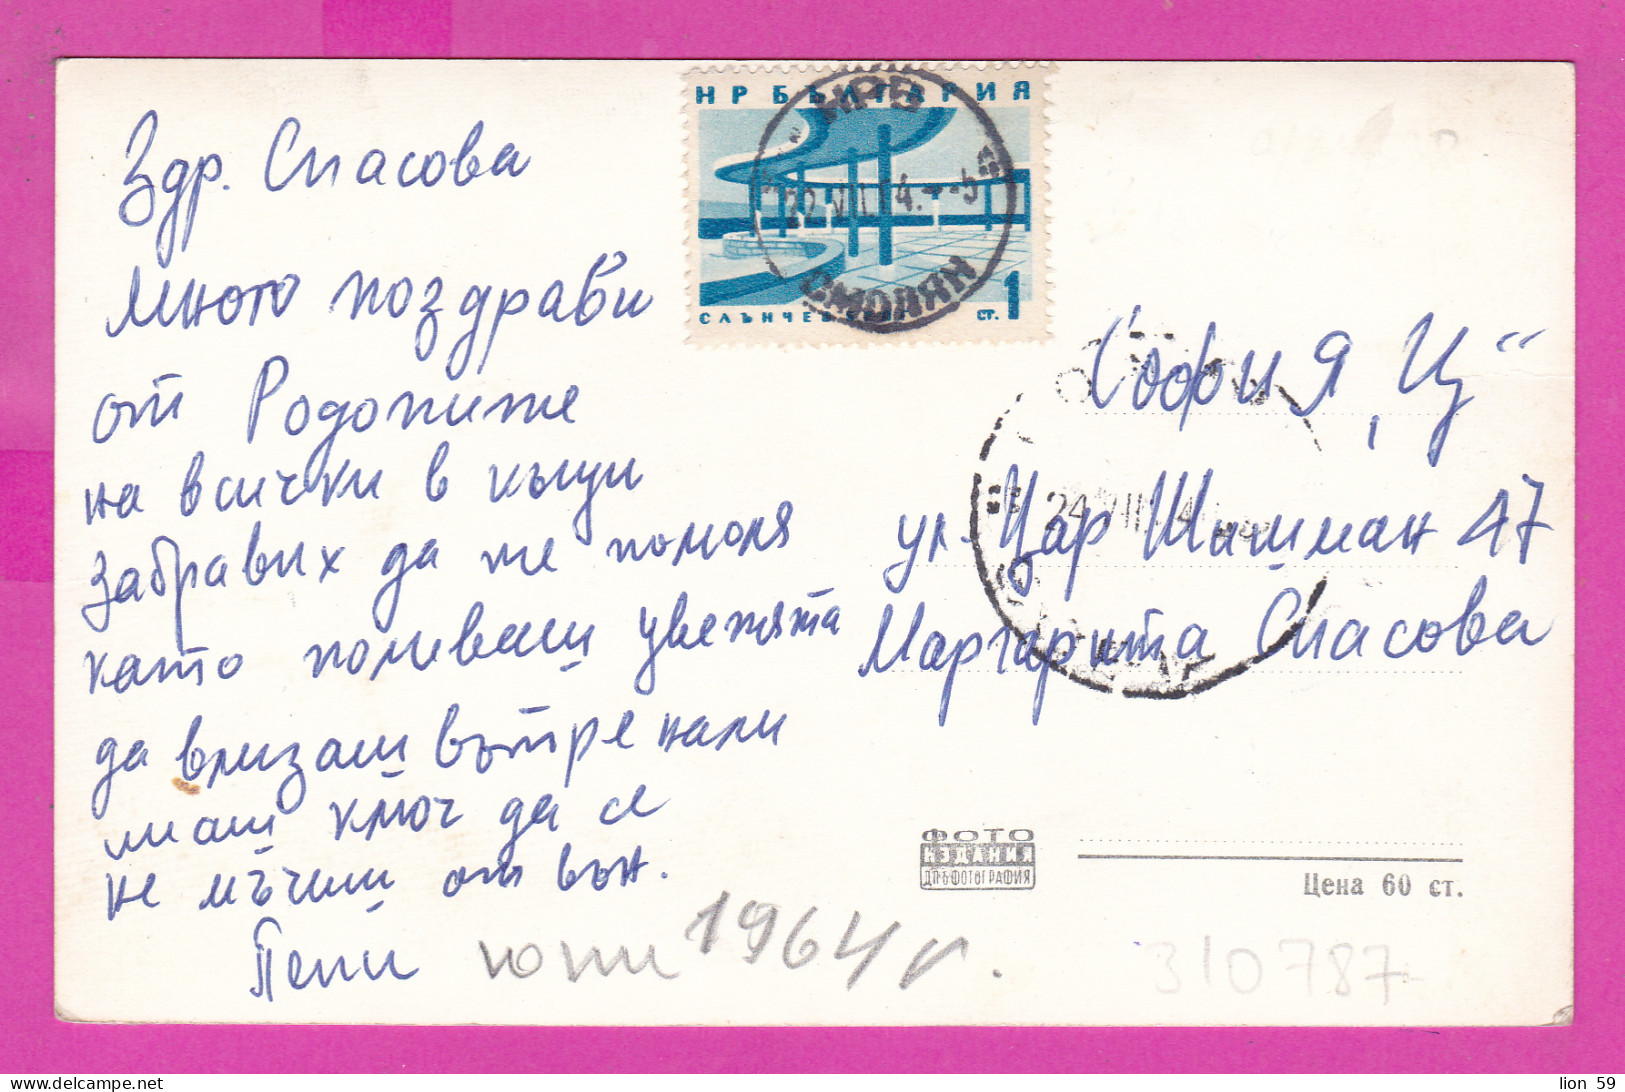 НР БЪЛГАРИЯ
НРБ
СМОЛЯН
ст. 1
Здр. Спасова
Много поздрави
от Родопите
на всички в къщи
забравих да те помоля
като поливаш цветята
да влизаш вътре нали
имаш ключ да се
не мъчиш от вън.
Пепи
юли 1964 г.
София „Ц“
ул. Цар Шишман 47
Маргарита Спасова
ФОТО
ИЗДАНИЯ
ДП„ФОТОГРАФИЯ
Цена 60 ст.
310787
lion 59